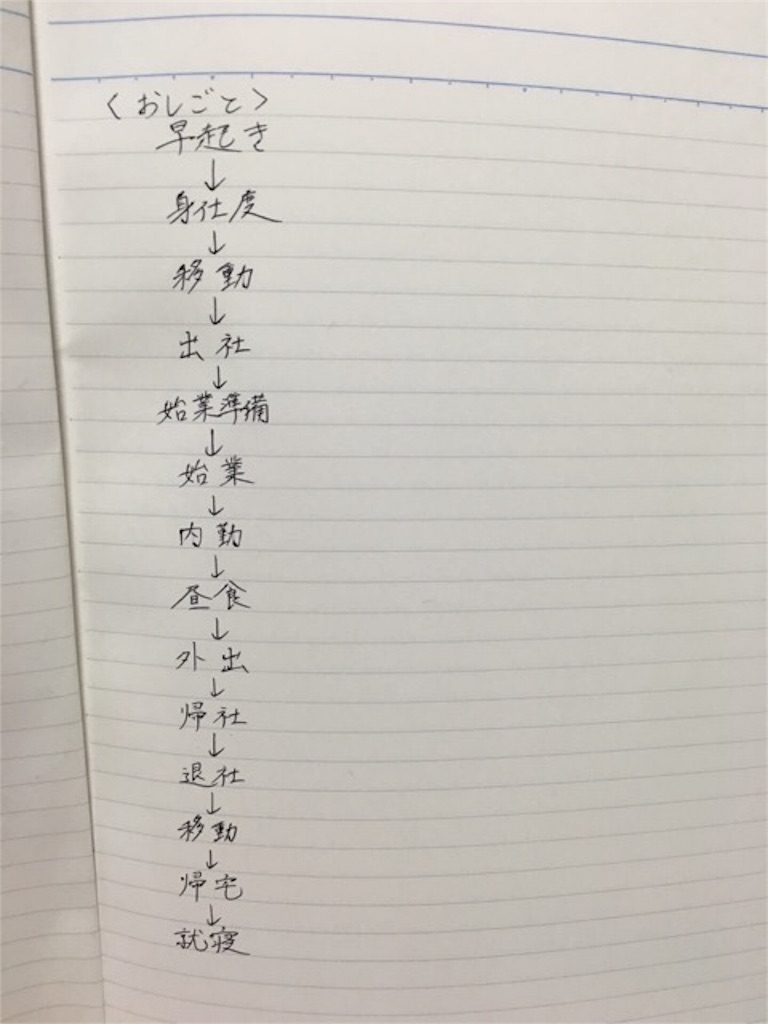 〈おしごと〉
早起き
↓
身仕度
↓
移動
↓
出社
↓
始業準備
↓
始業
↓
内勤
↓
昼食
↓
外出
↓
帰社
↓
退社
↓
移動
↓
帰宅
↓
就寝